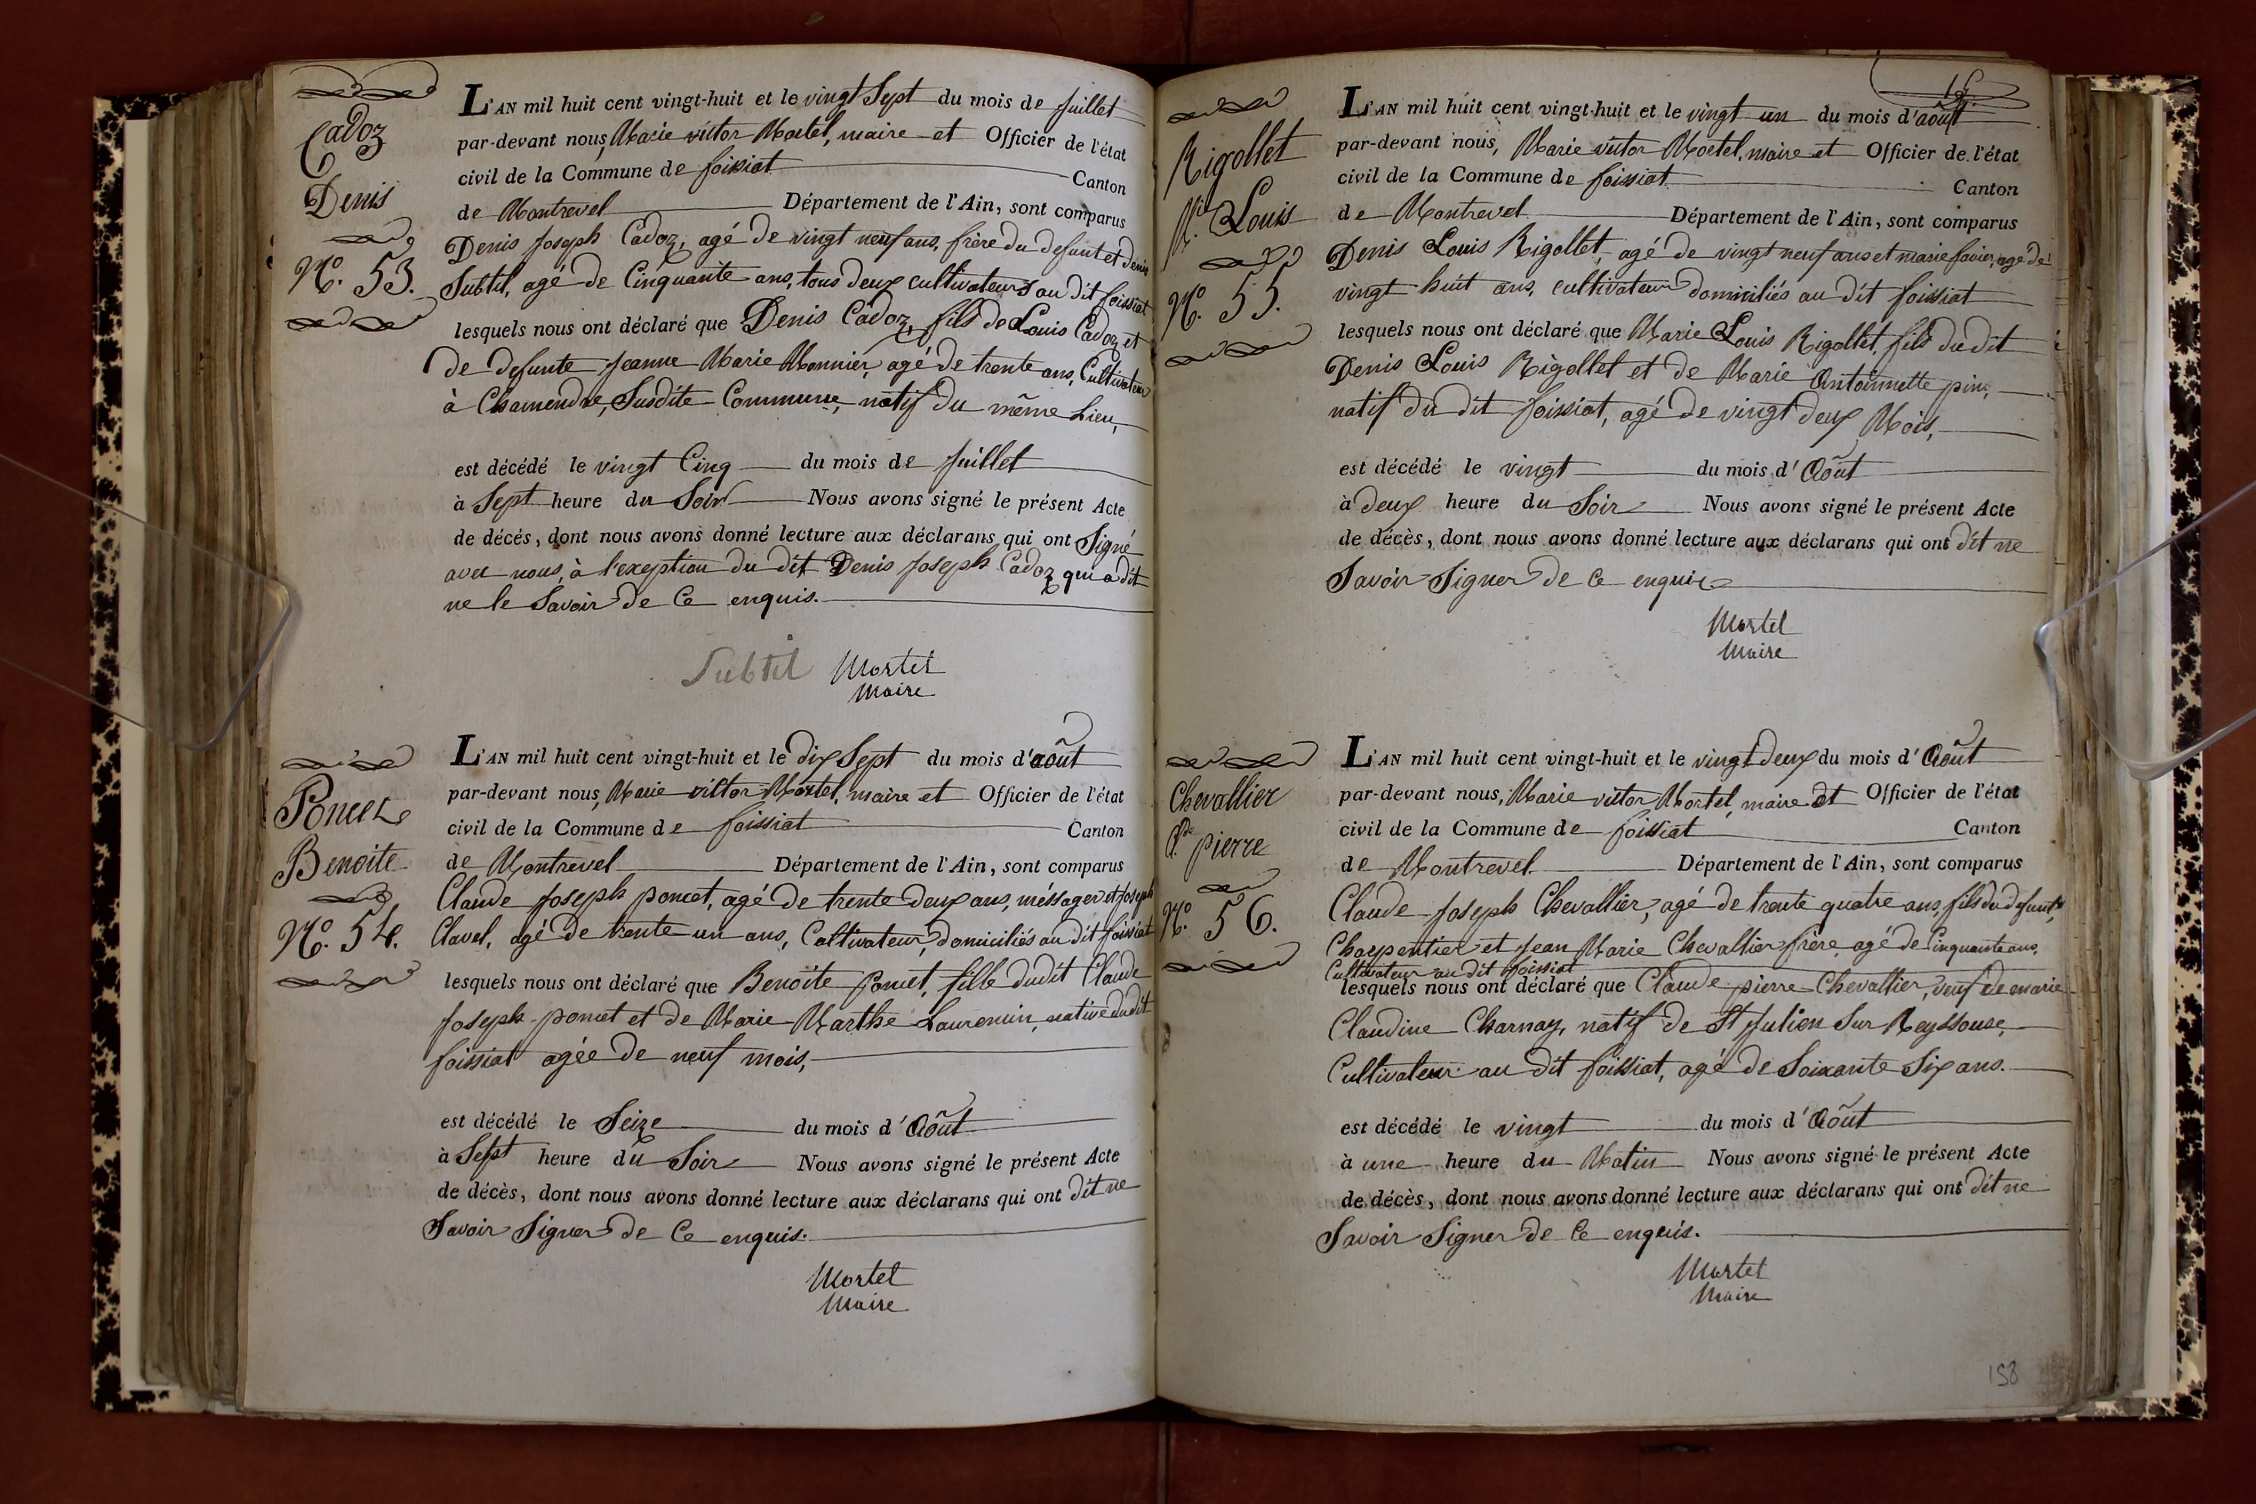 Cadoz
Denis
N.º 53.
L'AN mil huit cent vingt-huit et le vingt Sept du mois de Juillet
par-devant nous, Marie victor Mortel, maire et Officier de l'état
civil de la Commune de foissiat Canton
de Montrevel Département de l'Ain, sont comparus
Denis Joseph Cadoz, agé de vingt neuf ans, frère du defunt et denis
Subtil, agé de Cinquante ans, tous deux cultivateurs au dit foissiat
lesquels nous ont déclaré que Denis Cadoz, fils de Louis Cadoz et
de defunte Jeanne Marie Monnier, agé de trente ans, Cultivateur
à Chamendre, Susdite Commune, natif du même Lieu,
est décédé le vingt Cinq du mois de Juillet
à Sept heure du Soir Nous avons signé le présent Acte
de décés, dont nous avons donné lecture aux déclarans qui ont Signé
avec nous, à l'exeption du dit Denis Joseph Cadoz qui a dit
ne le Savoir de Ce enquis.
Subtil Mortel
Maire
Poncet
Benoite
N.º 54.
L'AN mil huit cent vingt-huit et le dix Sept du mois d'août
par-devant nous, Marie victor Mortel, maire et Officier de l'état
civil de la Commune de foissiat Canton
de Montrevel Département de l'Ain, sont comparus
Claude Joseph poncet, agé de trente deux ans, méssager et Joseph
Clavel, agé de trente un ans, Cultivateur, domiciliés au dit foissiat
lesquels nous ont déclaré que Benoite poncet, fille dudit Claude
Joseph poncet et de Marie Marthe Laurencin, native dudit
foissiat agée de neuf mois,
est décédé le Seize du mois d'Août
à Sept heure du Soir Nous avons signé le présent Acte
de décès, dont nous avons donné lecture aux déclarans qui ont dit ne
Savoir Signer de Ce enquis.
Mortel
Maire
Rigollet
M.ie Louis
N.º 55.
L'AN mil huit cent vingt-huit et le vingt un du mois d'août
par-devant nous, Marie victor Mortel, maire et Officier de l'état
civil de la Commune de foissiat Canton
de Montrevel Département de l'Ain, sont comparus
Denis Louis Rigollet, agé de vingt neuf ans et marie favier, agé de
vingt huit ans, cultivateur domiciliés au dit foissiat
lesquels nous ont déclaré que Marie Louis Rigollet, fils du dit
Denis Louis Rigollet et de Marie Antoinnette pin,
natif du dit foissiat, agé de vingt deux Mois,
est décédé le vingt du mois d'Août
à deux heure du Soir Nous avons signé le présent Acte
de décès, dont nous avons donné lecture aux déclarans qui ont dit ne
Savoir Signer de Ce enquis
Mortel
Maire
Chevallier
C.de pierre
N.º 56.
L'AN mil huit cent vingt-huit et le vingt deux du mois d'Août
par-devant nous, Marie victor Mortel, maire et Officier de l'état
civil de la Commune de foissiat Canton
de Montrevel Département de l'Ain, sont comparus
Claude Joseph Chevallier, agé de trente quatre ans, fils du defunt,
Charpentier et Jean Marie Chevallier frère, agé de Cinquante ans,
Cultivateur au dit foissiat
lesquels nous ont déclaré que Claude pierre Chevallier, veuf de marie
Claudine Charnay, natif de St Julien Sur Reyssouse,
Cultivateur au dit foissiat, agé de Soixante Six ans.
est décédé le vingt du mois d'Août
à une heure du Matin Nous avons signé le présent Acte
de décès, dont nous avons donné lecture aux déclarans qui ont dit ne
Savoir Signer de Ce enquis.
Mortel
Maire
158